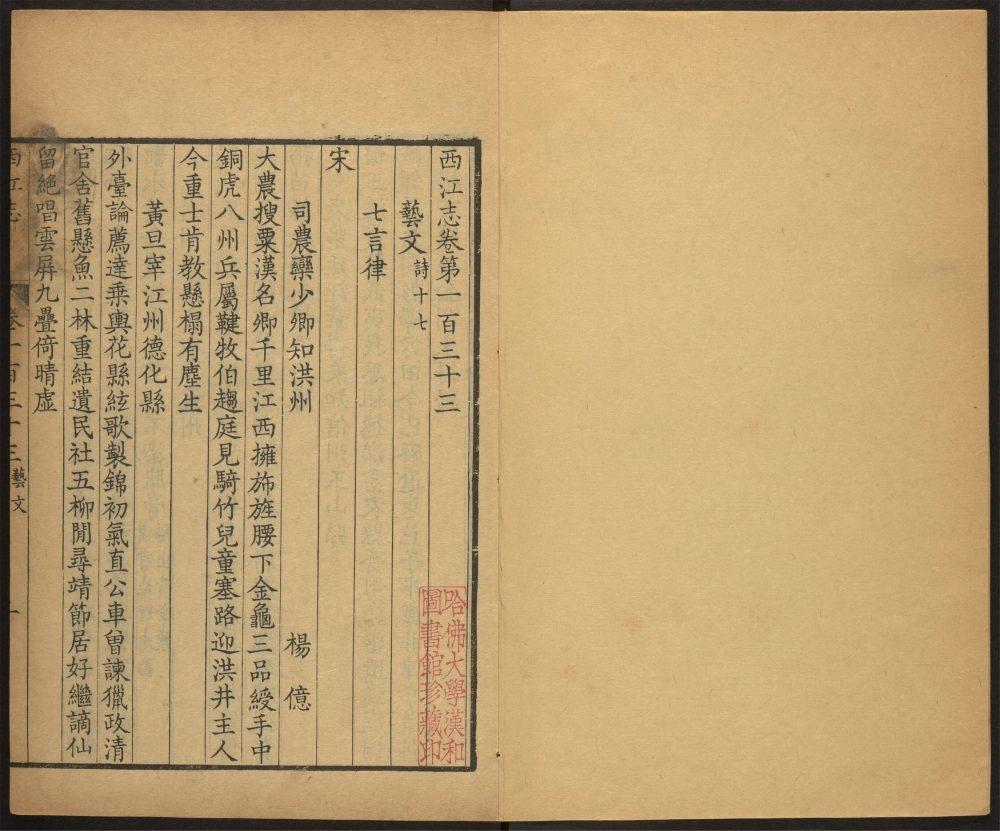 西江志卷第一百三十三
藝文詩十七
七言律
宋
司農欒少卿知洪州 楊億
大農搜粟漢名卿千里江西擁斾旌腰下金龜三品綬手中
銅虎八州兵屬鞬牧伯趨庭見騎竹兒童塞路迎洪井主人
今重士肯教懸榻有塵生
黃旦宰江州德化縣
外臺論薦達乘輿花縣絃歌製錦初氣直公車曾諫獵政清
官舍舊懸魚二林重結遺民社五柳閒尋靖節居好繼謫仙
留絕唱雲屏九疊倚晴虛
西江志 卷一百三十三 藝文 一
哈佛大學漢和
圖書館珍藏印